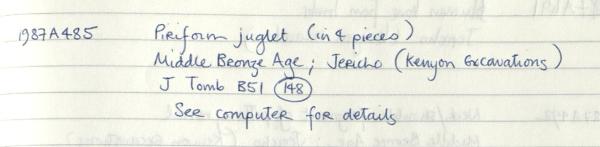 1987A485 Piriform juglet (in 4 pieces)
Middle Bronze Age; Jericho (Kenyon Excavations)
J Tomb B51 148
See computer for details